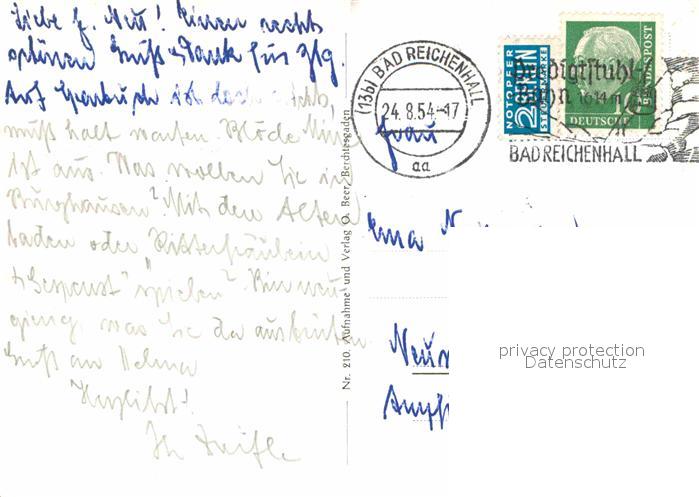 Liebe Fr. Neu! Einen recht
schönen Gruß + Dank für Ztg.
Auf
muß halt warten. Blöde
ist aus. Was wollen Sie in
Burghausen? Mit den Alten
baden oder Ritterfräulein
+ Gespenst" spielen? Bin neu-
gierig was Sie da ausbrüten
Gruß an Helma
Herzlichst!
Ihr
Nr. 210. Aufnahme und Verlag O. Beer, Berchtesgaden
(13b) BAD REICHENHALL
24.8.54.-17
aa
NOTOPFER
2 BERLIN
STEUERMARKE
DEUTSCHE
BUNDESPOST
Predigtstuhl-
Bahn 1614 m
BAD REICHENHALL
Frau
Erna
privacy protection
Datenschutz